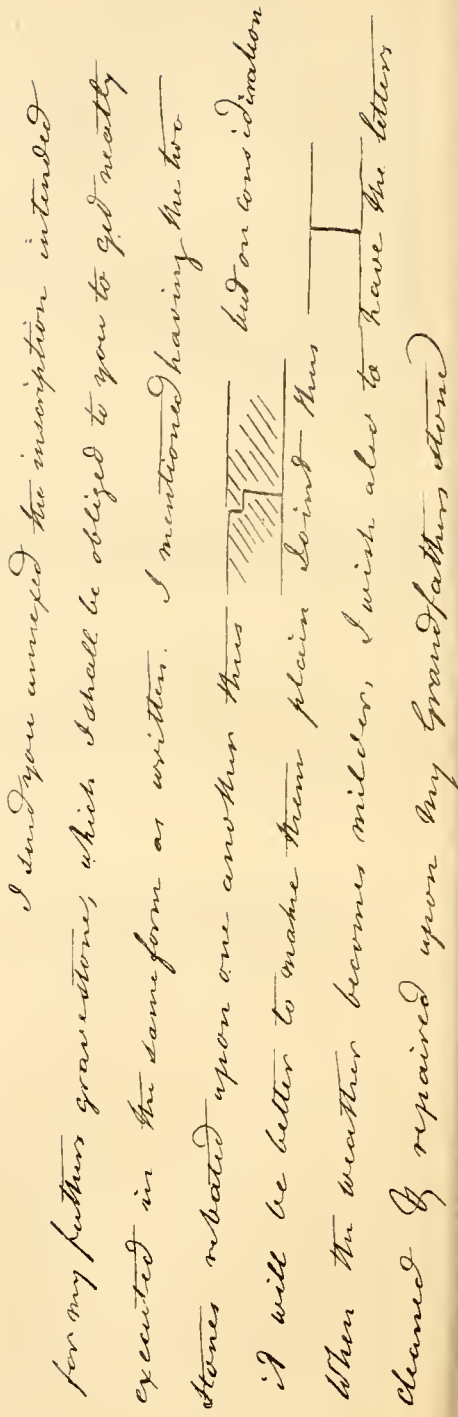 I send you annexed the inscription intended
for my fathers gravestone, which I shall be obliged to you to get neatly
executed in the same form as written. I mentioned having the two
stones rebated upon one another thus but on consideration
it will be better to make them plain Joind thus
When the weather becomes milder, I wish also to have the letters
cleaned & repaired upon my Grandfathers stone